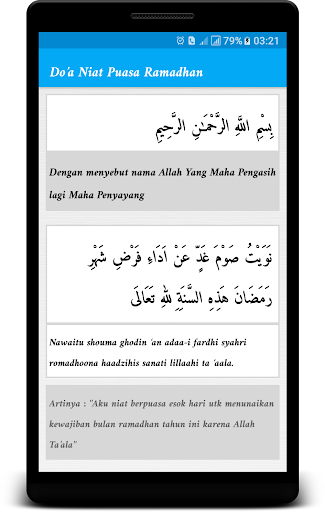 79% 03:21
Do'a Niat Puasa Ramadhan
بِسْمِ اللَّهِ الرَّحْمَٰنِ الرَّحِيمِ
Dengan menyebut nama Allah Yang Maha Pengasih
lagi Maha Penyayang
نَوَيْتُ صَوْمَ غَدٍّ عَنْ اَدَاءِ فَرْضِ شَهْرِ
رَمَضَانَ هَذِهِ السَّنَةِ لِلهِ تَعَالَى
Nawaitu shouma ghodin 'an adaa-i fardhi syahri
romadhoona haadzihis sanati lillaahi ta 'aala.
Artinya : "Aku niat berpuasa esok hari utk menunaikan
kewajiban bulan ramadhan tahun ini karena Allah
Ta'ala"